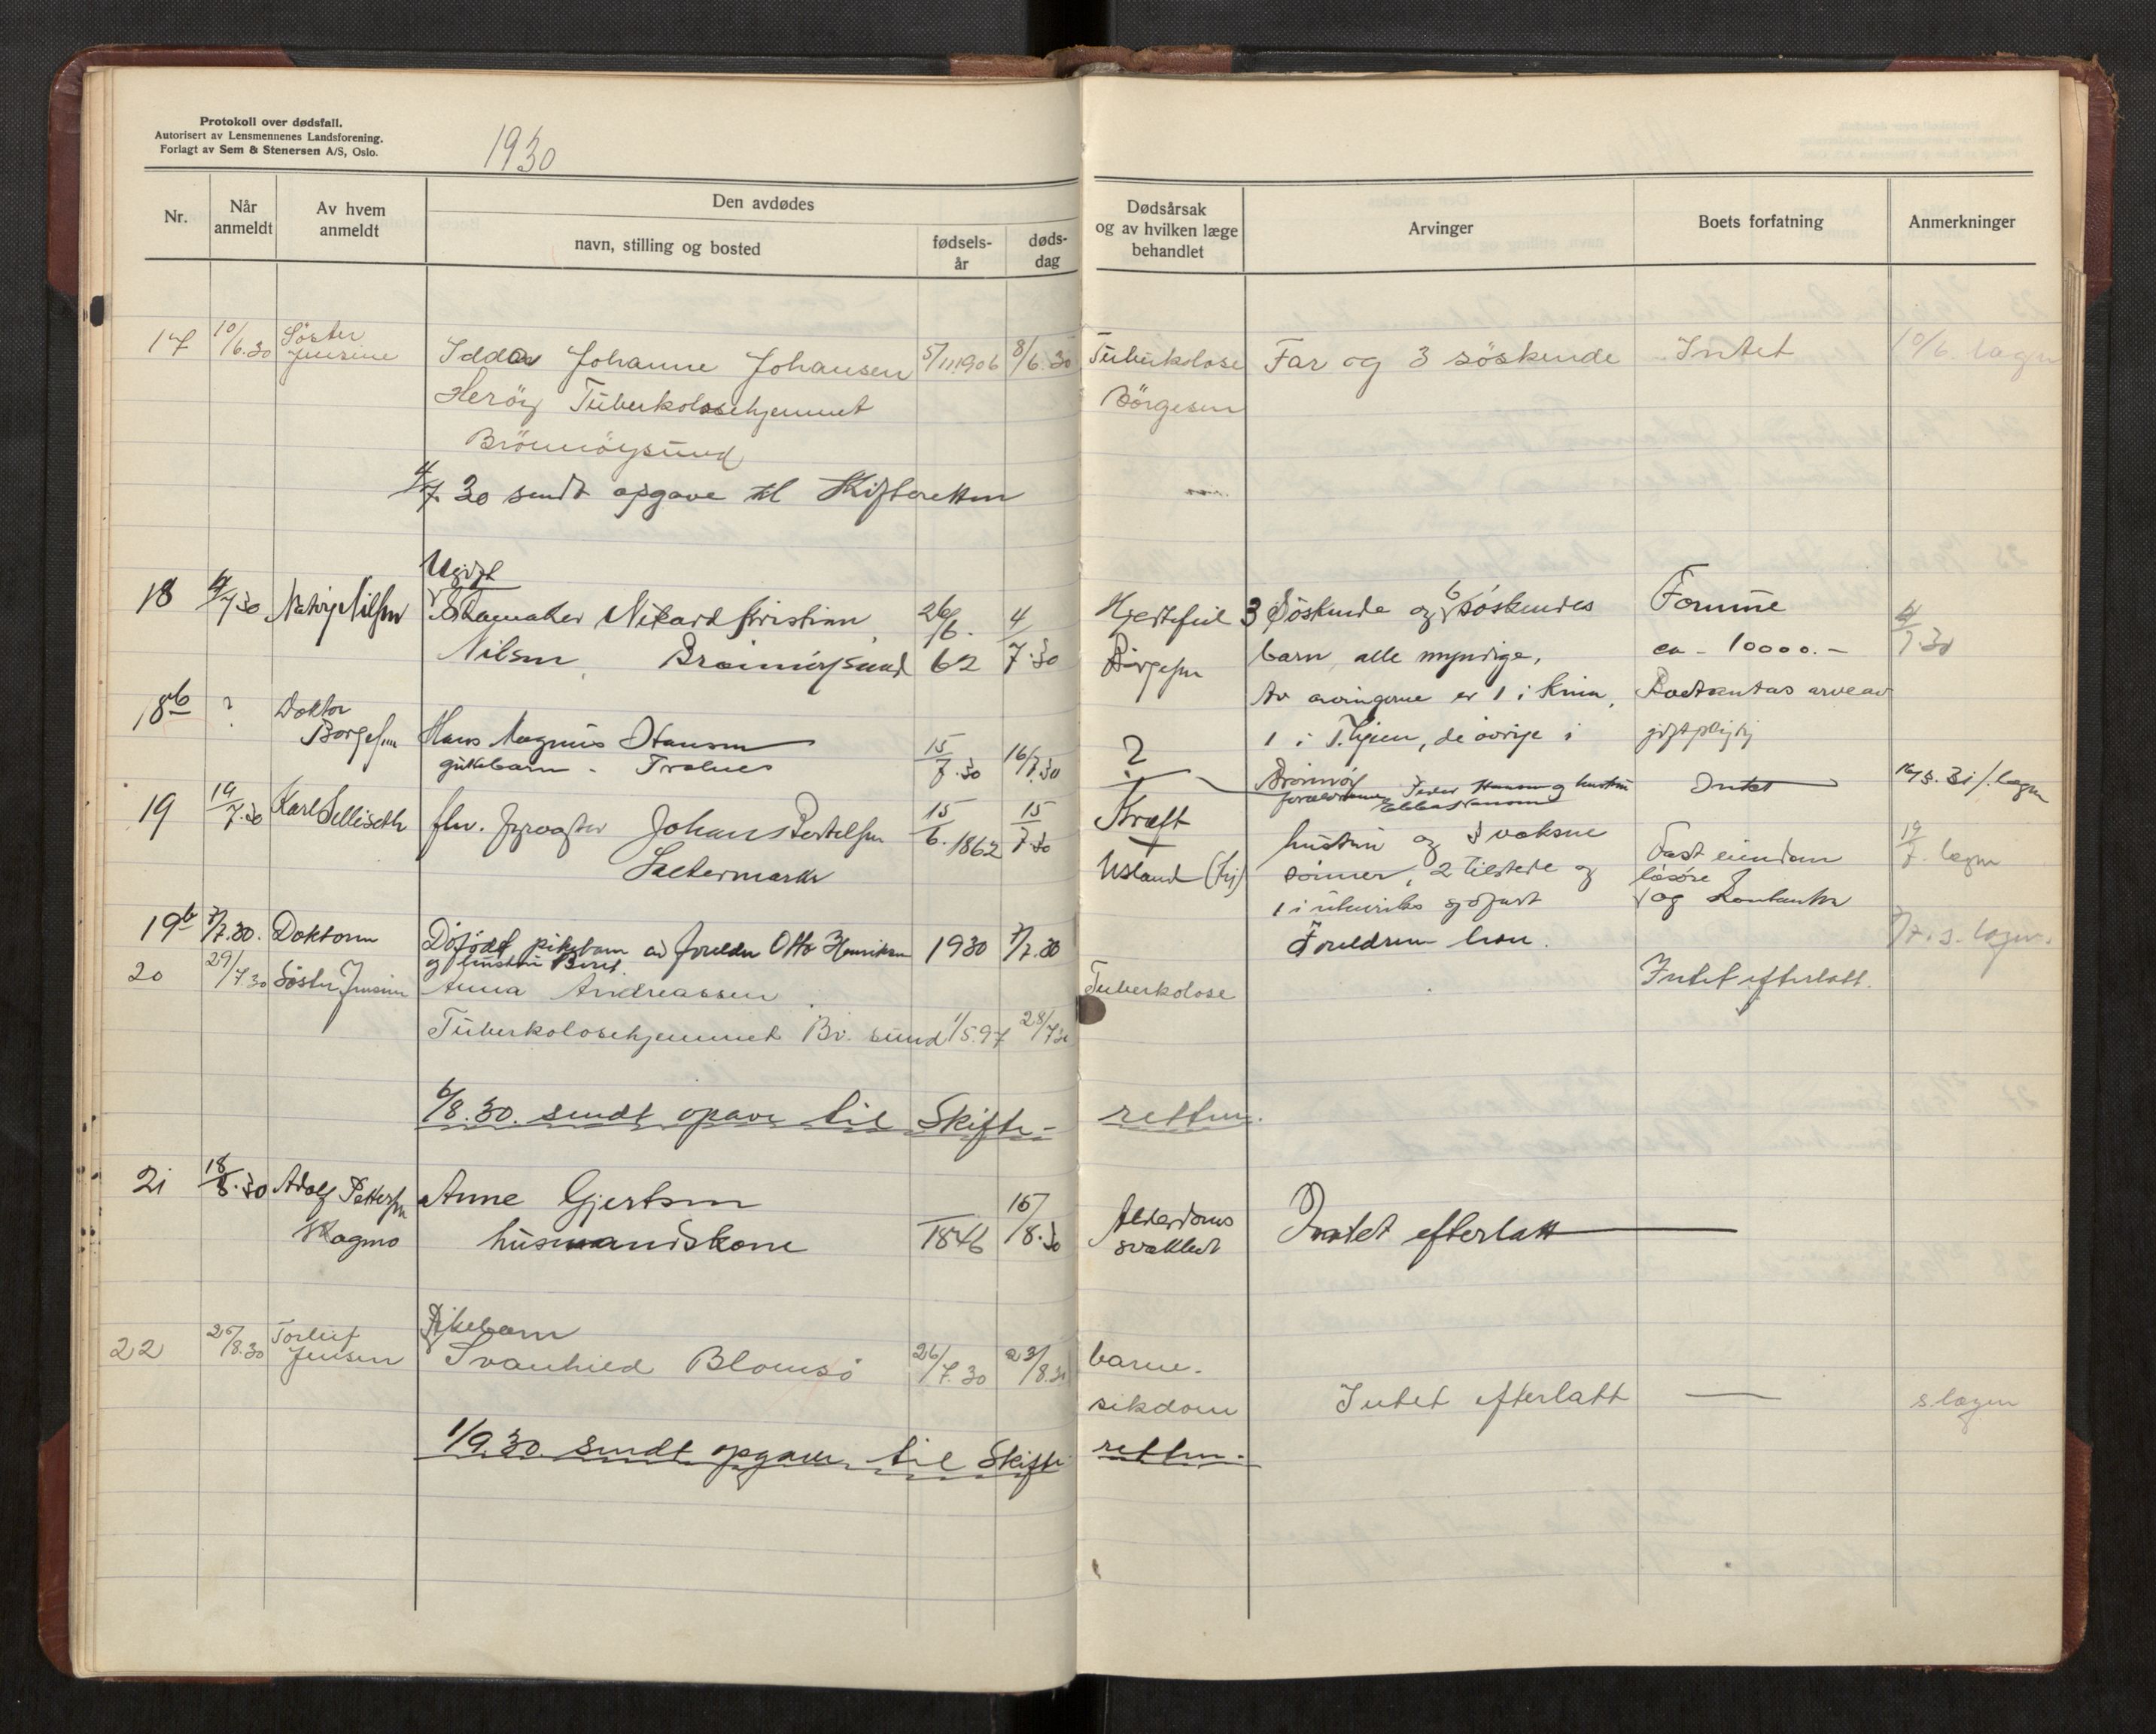 Protokoll over dødsfall.
Autorisert av Lensmennenes Landsforening.
Forlagt av Sem & Stenersen A/S, Oslo.
1930
Nr.
Når anmeldt
Av hvem anmeldt
Den avdødes
navn, stilling og bosted
fødsels-år
døds-dag
Dødsårsak og av hvilken læge behandlet
Arvinger
Boets forfatning
Anmerkninger
17 10/6.30 Søster Jensine Idda Johanne Johansen 5/11 1906 8/6.30 Tuberkolose Far og 3 søskende Intet 10/6. lagn
Herøy Tuberkolosehjemmet Börgesen
Brönnöysund
4/7.30 sendt opgave til Skifteretten
Ugift
18 4/7.30 Nilsen Skomaker Nikard Kristian 26/6. 4 Hjertefeil 3 Søskende og 6 søskendes Formue
Nilsen, Brönnöysund 62 7.30 Börgesen barn, alle myndige, ca - 10000.- 7.30
Av arvingerne er 1 i Kina,
18b ? Doktor
Borgesen Hans Magnus Hansen 15/7.30 16/7.30 ? 1 i , de øvrige i
guttebarn - Brönnöy
foreldrene Peder Hansen og hustru Intet
19 19/7.30 Karl Selliseth fhv. fyrvogter Johan Bertelsen 15/6.1862 15/7.30 Kræft hustru og 3 voksne Fast eiendom 19/7. lagn
Saltermark Usland sønner, 2 tilstede og løsøre
1 i utenriks sjøfart og kontanter
19b 7/7.30. Doktoren Dødfødt pikebarn av foreldre Otto Henriksen 1930 7/7.30 Foreldrene
og hustru Berit.
20 29/7.30 Søster Jensine Anna Andreassen Tuberkolose Intet efterlatt.
Tuberkolosehjemmet Br. sund 1/5.97 28/7.30
6/8.30. sendt opave til Skifte-retten.
21 18/8.30 Adolf Pettersen Anne Gjertsen 16/8.30 Alderdoms Intet efterlatt
Skogmo husmandskone 1846 svakhet
Pikebarn
22 25/8.30 Torleif Jensen Svanhild Blomsö 26/7.30 23/8.30 barne-
sikdom Intet efterlatt — s lagn
1/9.30. sendt opgave til Skifteretten.